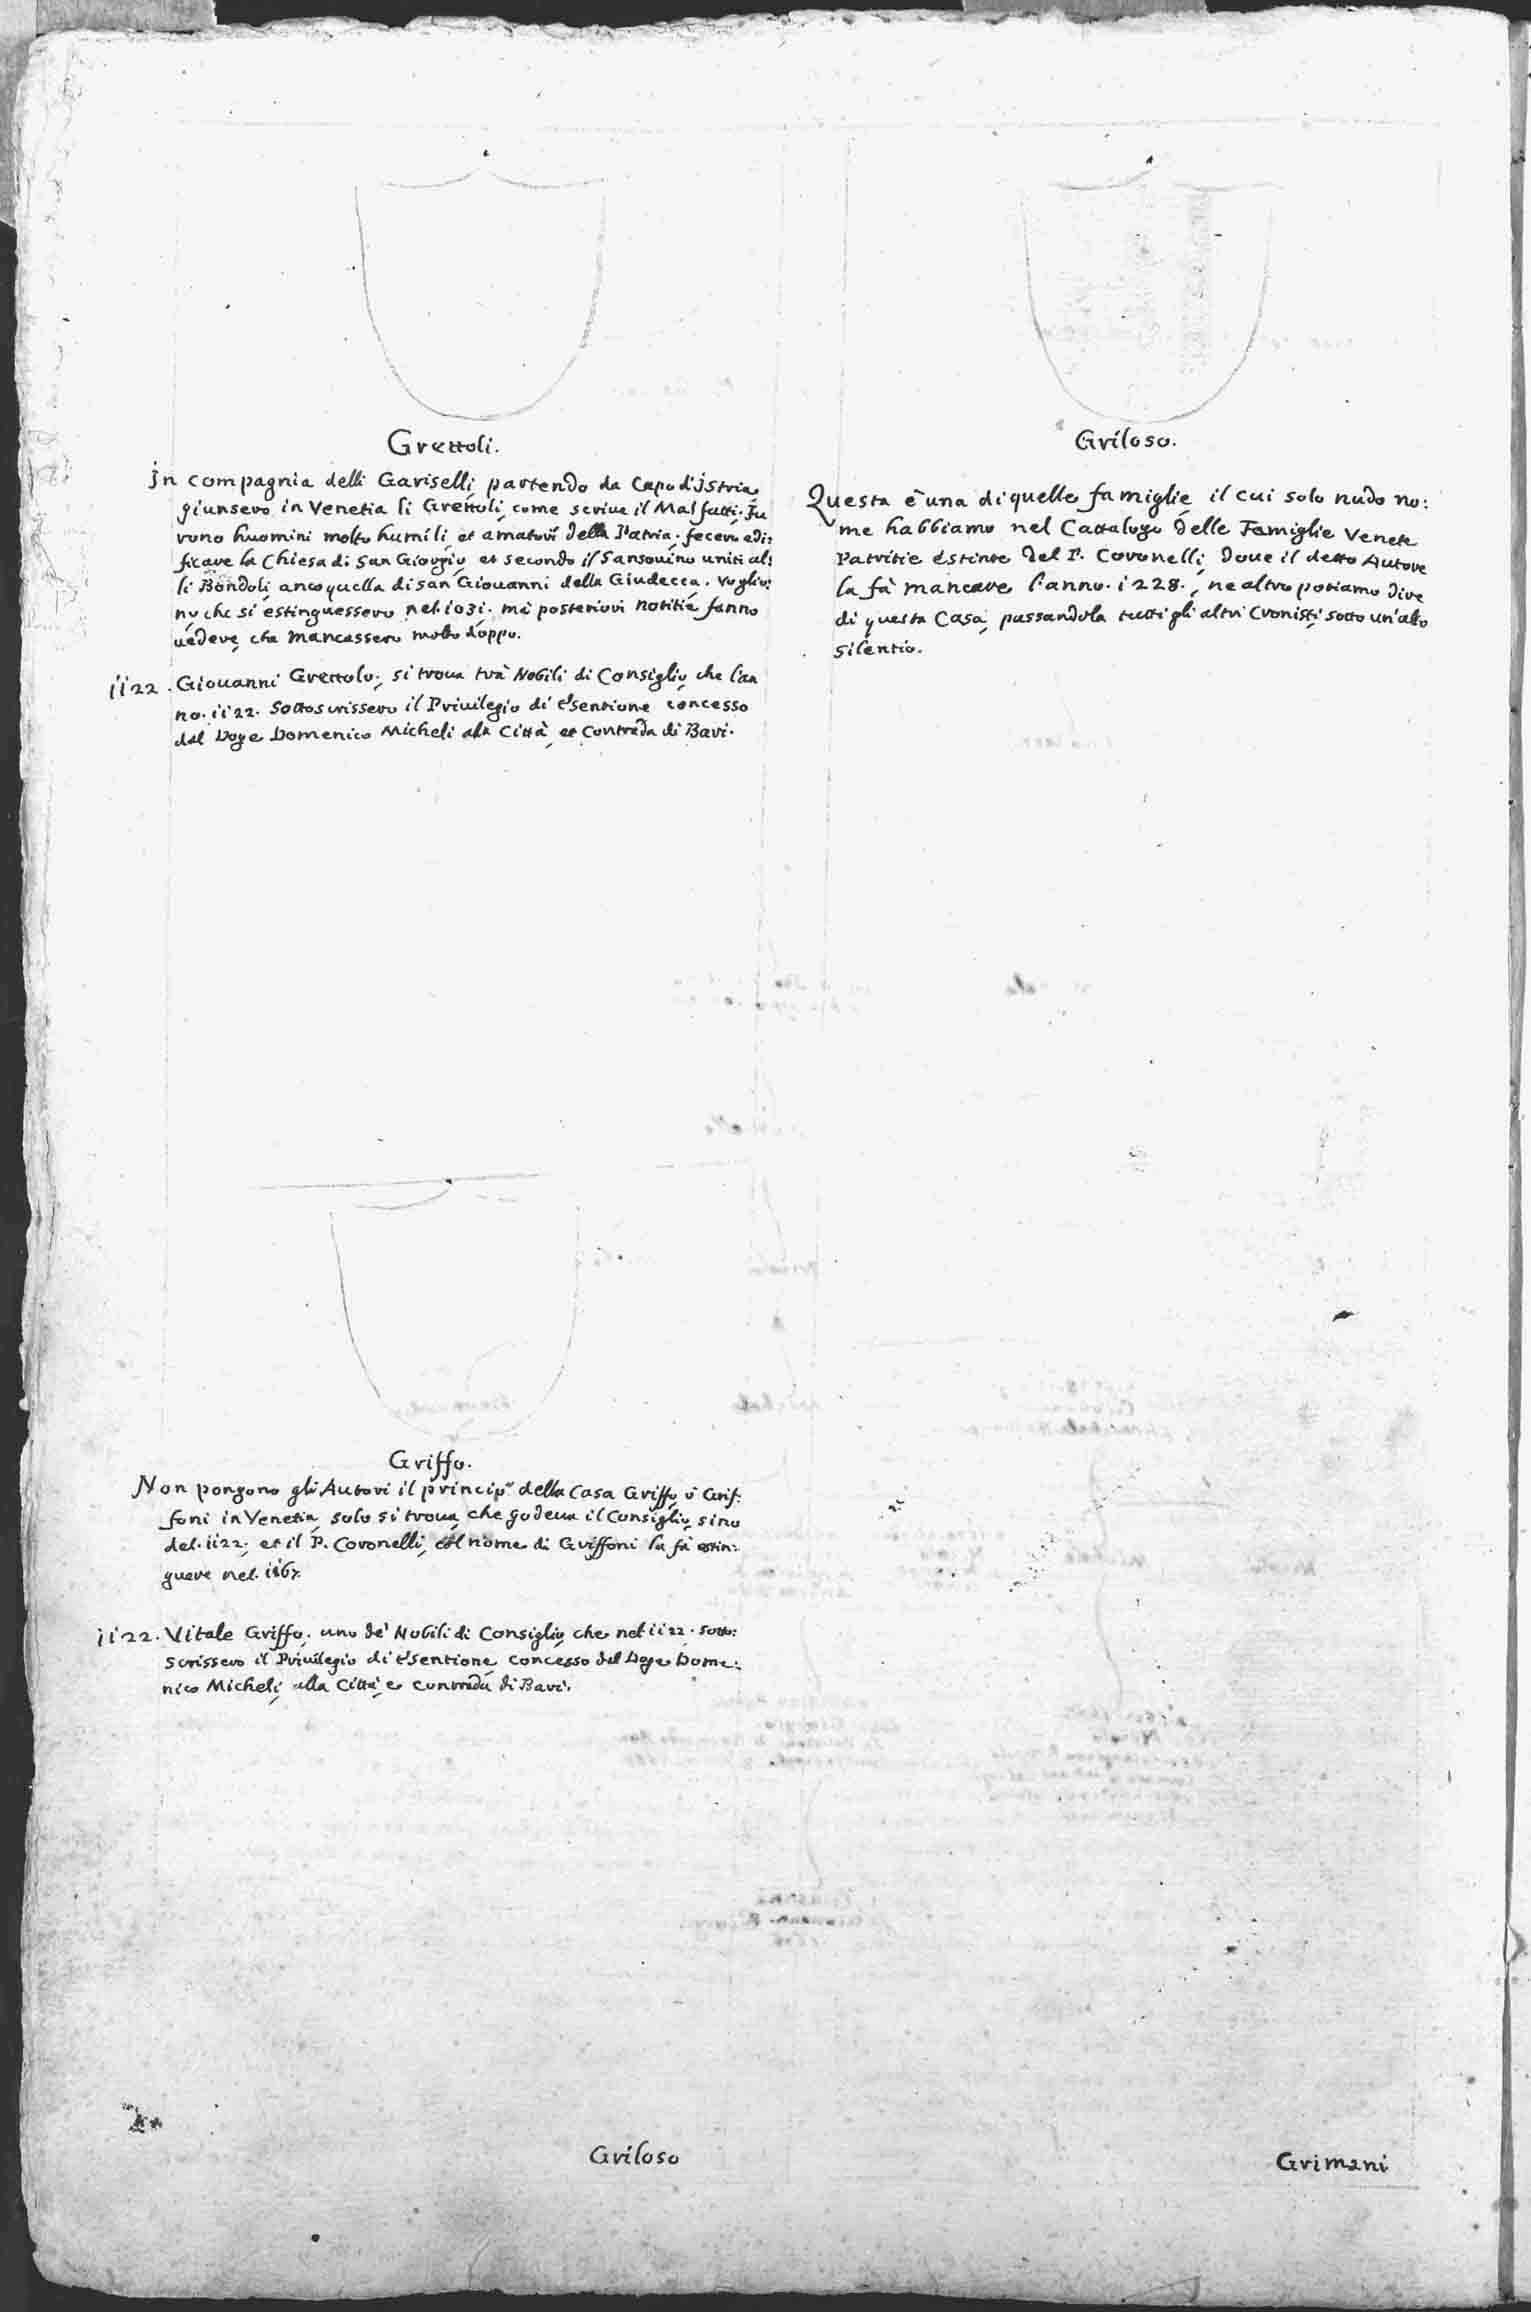 Grettoli.
In compagnia delli Gariselli, partendo da Capo d'Istria,
giunsero in Venetia li Grettoli, come scriue il Malfatti. Fu
rono huomini molto humili, et amatori della Patria. fecero edi:
ficare la Chiesa di San Giorgio et secondo il Sansouino uniti al:
li Bondoli, anco quella di San Giouanni della Giudecca. Voglio:
no, che si estinguessero nel 1031. mà posteriori notitie fanno
uedere, che mancassero molto doppo.
1122. Giouanni Grettolo, si troua trà Nobili di Consiglio, che l'an
no. 1122. Sottoscrissero il Priuilegio di Esentione concesso
dal Doge Domenico Micheli alla Città, et Contrada di Bari.
Griffo.
Non pongono gli Autori il princip.o della Casa Griffo, ò Grif:
foni in Venetia, solo si troua, che godeua il Consiglio, sino
del. 1122, et il P. Coronelli, col nome di Griffoni la fà estin:
guere nel. 1167.
1122. Vitale Griffo. uno de' Nobili di Consiglio, che nel 1122. Sotto:
scrissero il Priuilegio di Esentione, concesso dal Doge Dome:
nico Micheli, alla Città, e contrada di Bari.
Griloso
Griloso.
Questa è una di quelle famiglie, il cui solo nudo no:
me habbiamo nel Cattalogo delle Famiglie Venete
Patritie estinte del P. Coronelli, doue il detto Autore
la fà mancare l'anno. 1228., ne altro potiamo dire
di questa Casa, passandola tutti gli altri Cronisti, sotto un'alto
silentio.
Grimani